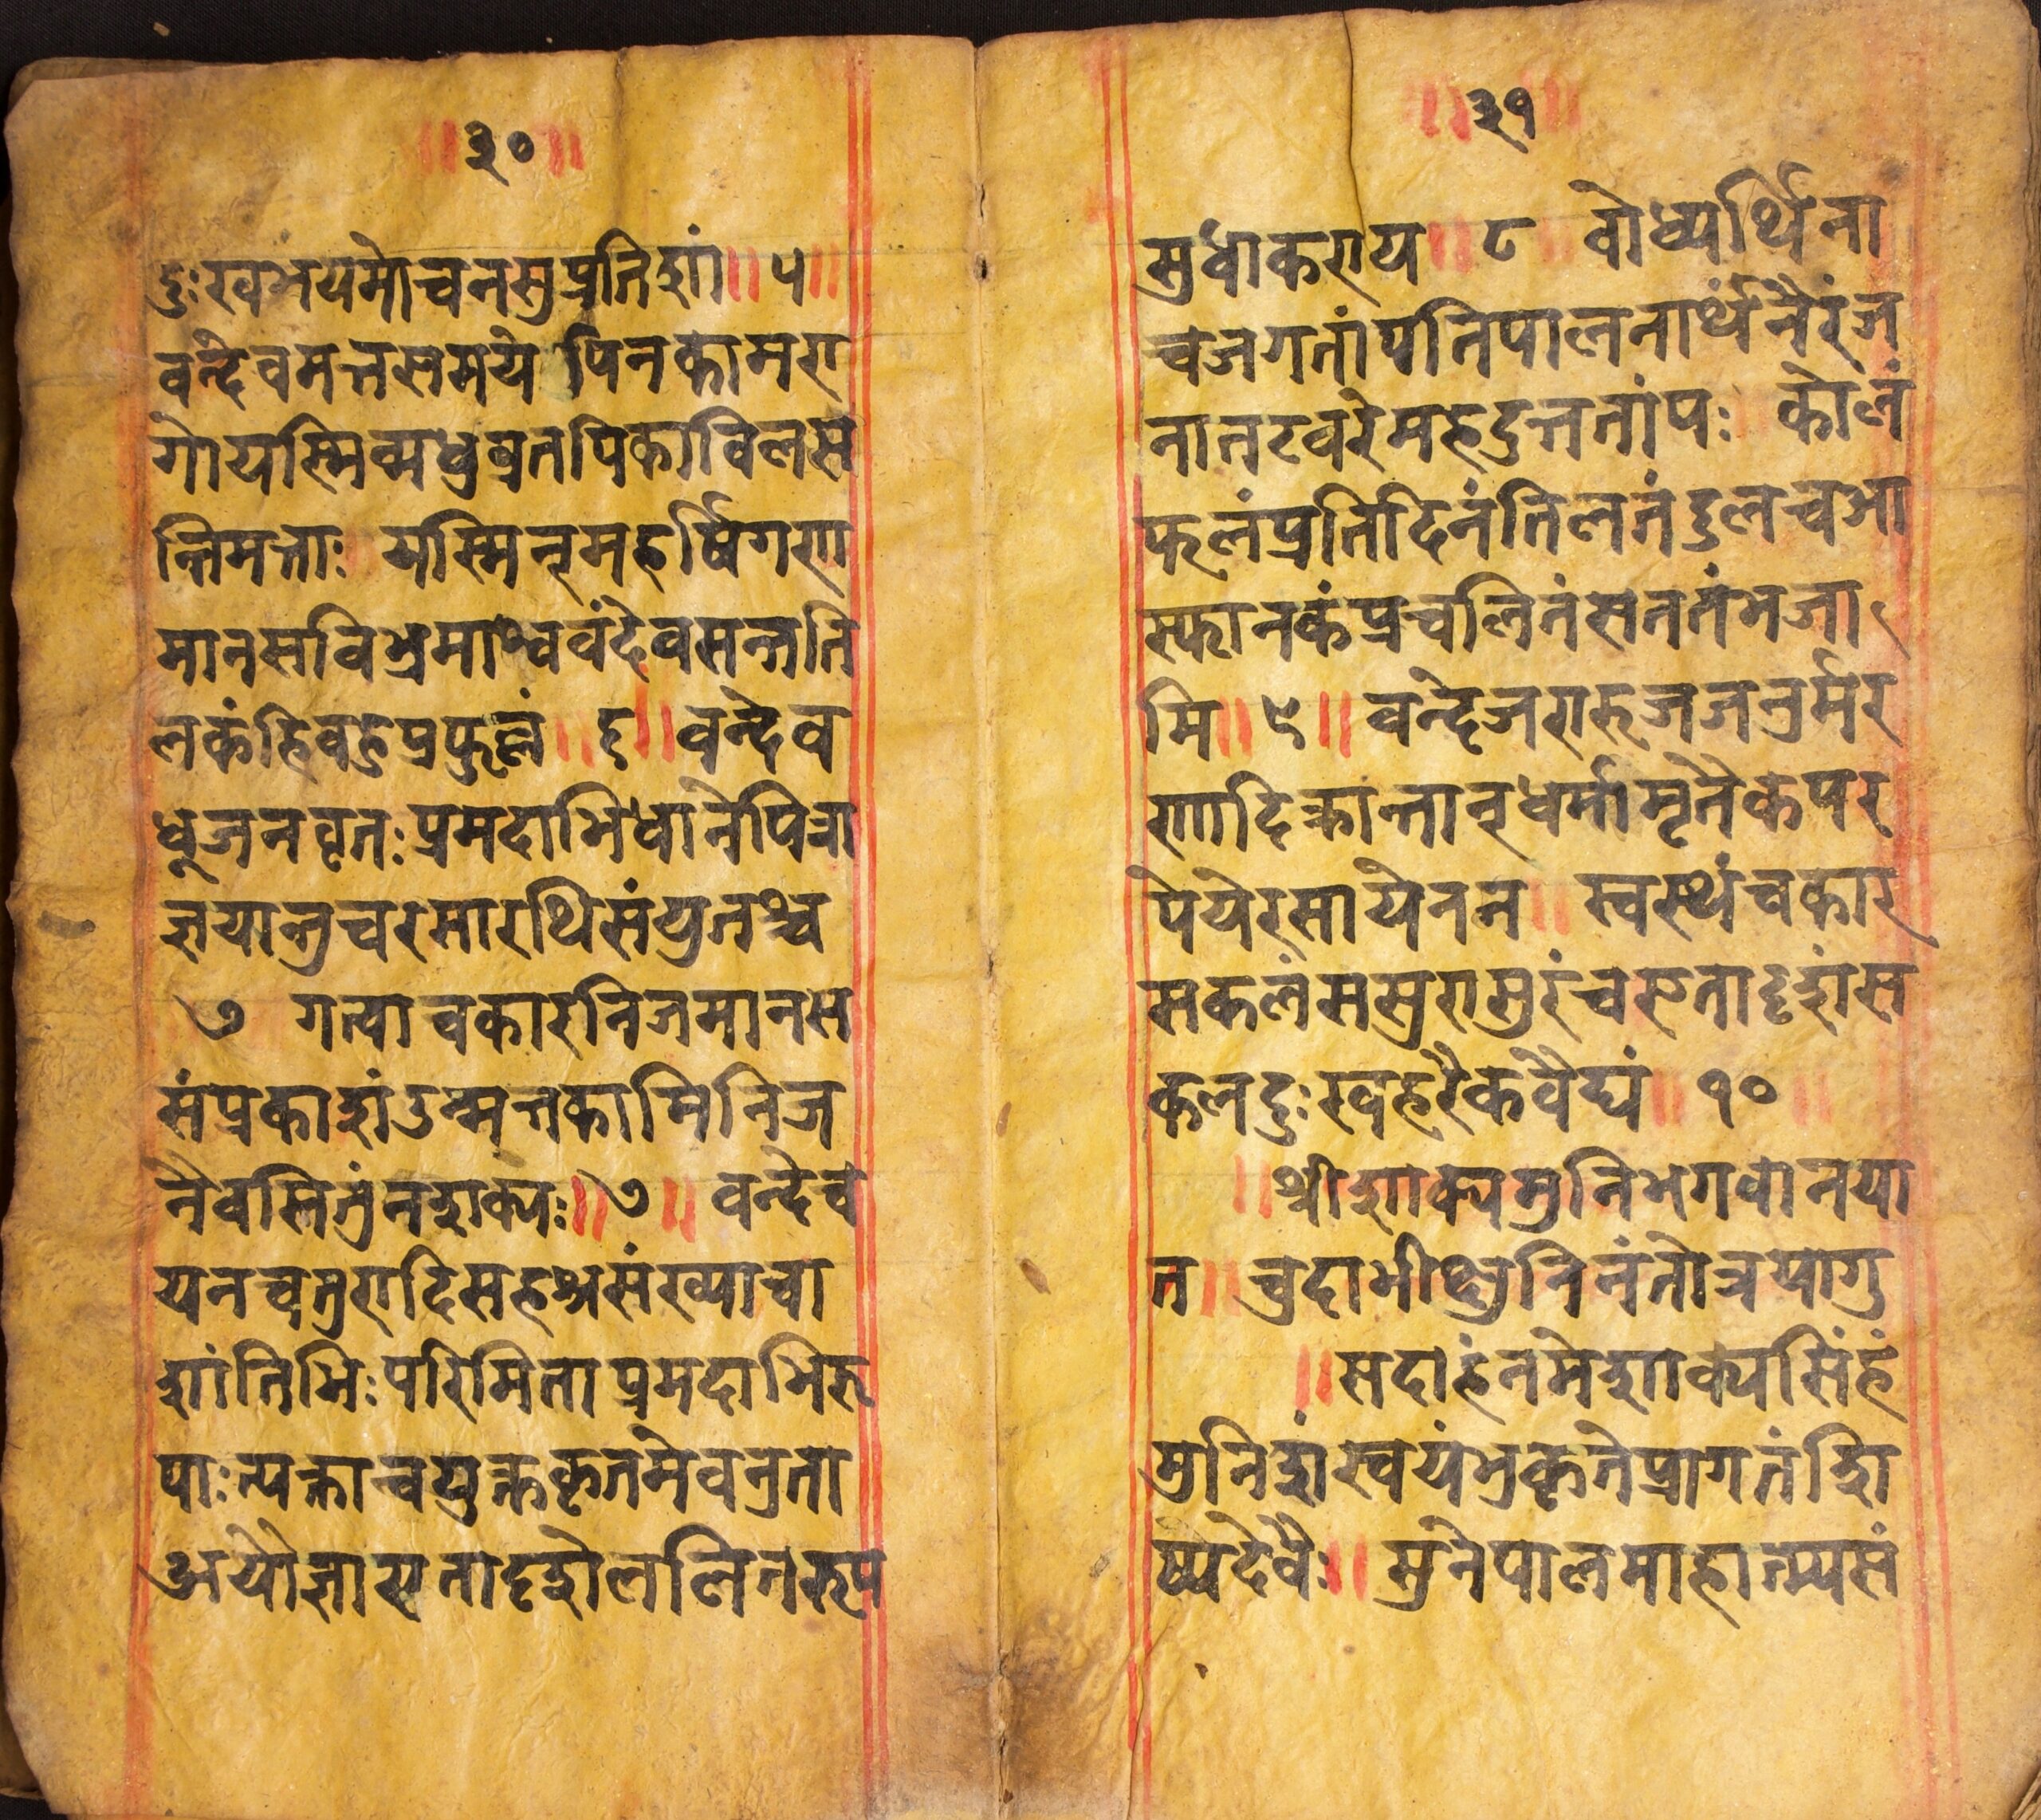 ॥३०॥
दुःखभयमोचनसुप्रतिज्ञां॥५॥
वन्देवमत्तसमये पिनकामरा
गोयस्मिन्मधुव्रतपिकाविलस
न्तिमत्ताः यस्मिन्महर्षिगणा
मानसविभ्रमाश्चवंदेवसन्तति
लकंहिवहुप्रफुल्लं॥६॥वन्देव
धूजनवृतःप्रमदाभिधानेपित्रा
ज्ञयानुचरसारथिसंयुतश्च
७ गत्वाचकारनिजमानस
संप्रकाशंउन्मत्तकामिनिज
नैवसितुंनशक्यः॥७॥ वन्देच
यनचतुरादिसहश्रसंख्याचा
शांतिभिःपरिमिताप्रमदाभिरू
पाःत्यक्तान्वयुक्तकृतमेवनुता
अयोज्ञासएतादृशोललितरूप
॥३१॥
सुधाकराय॥८ वोध्यर्थिना
चजगतांपनिपालनार्थंनैरंज
नातटवरेमहदुत्ततांपः कोलं
फलंप्रतिदिनंतिलतंडुलचआ
स्फानकंप्रचलितंसततंभजा
मि॥९॥वन्देजरारुजजनुर्मर
णादिक्रान्तान्धर्मामृतैकपर
पेयेरसायेनन॥ स्वस्थंचकार
सकलंससुरासुरंचएतादृशंस
कलदुःखहरैकवैद्यं॥१०॥
॥श्रीशाक्यमुनिभगवानया
त॥चुदाभीक्षुनिनंतोत्रयागु
॥सदाहंनमेशाक्यसिंहं
मुनिशंस्वयंभुकृतेप्रागतंशि
ष्यदेवैः॥सुनेपालमाहात्म्यसं